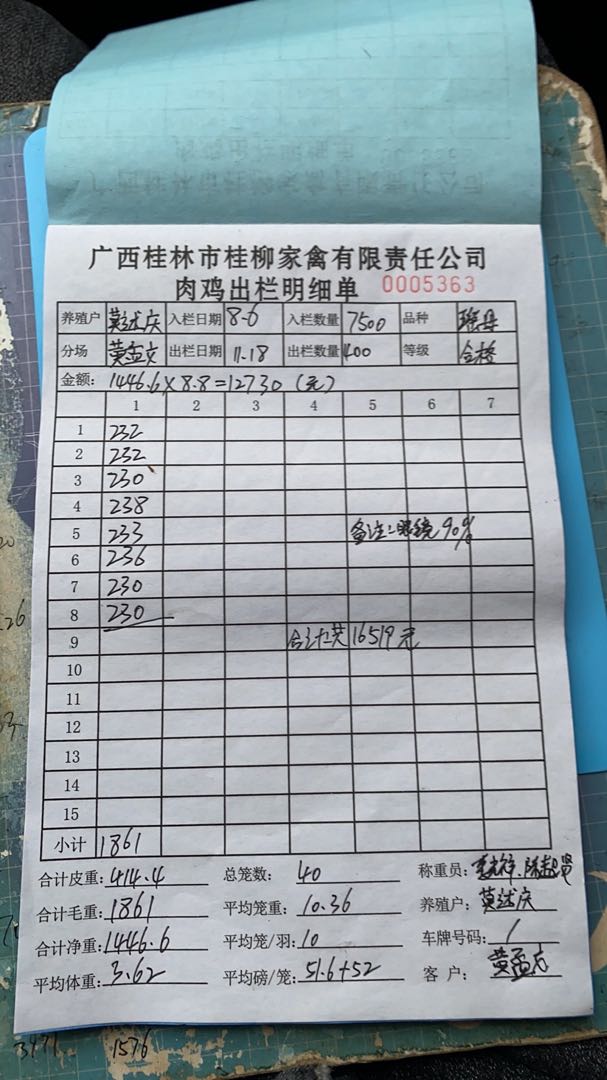 广西桂林市桂柳家禽有限责任公司
肉鸡出栏明细单 0005363
养殖户 莫述庆 入栏日期 8-6 入栏数量 7500 品种
分场 黄孟文 出栏日期 11.18 出栏数量 400 等级 合格
金额: 1446.6×8.8=12730 (元)
1 2 3 4 5 6 7
1 232
2 232
3 230
4 238
5 233 备注:眼镜90%
6 236
7 230
8 230
9 合计共16519元
10
11
12
13
14
15
小计 1861
合计皮重: 414.4 总笼数: 40 称重员:
合计毛重: 1861 平均笼重: 10.36 养殖户: 莫述庆
合计净重: 1446.6 平均笼/羽: 10 车牌号码: /
平均体重: 3.62 平均磅/笼: 51.6+52 客户:
1576